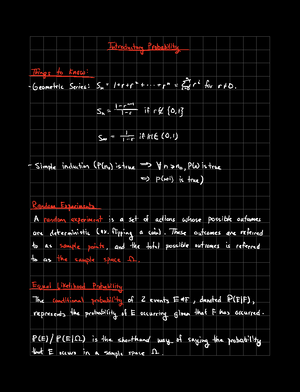 Introductory Probability
Things to Know:
- Geometric Series: Sₙ = 1 + r + r² + ····· + rⁿ = Σ rⁱ for r ≠ 0.
Sₙ = (1 - rⁿ⁺¹)/(1 - r) if r ∉ {0,1}
S∞ = 1/(1 - r) if |r| ∈ (0,1)
- Simple induction (P(n₀) is true ⟹ ∀ n ≥ n₀, P(n) is true
⟹ P(n+1) is true)
Random Experiments
A random experiment is a set of actions whose possible outcomes
are deterministic (ex. flipping a coin). These outcomes are referred
to as sample points, and the total possible outcomes is referred
to as the sample space Ω.
Equal Likelihood Probability
The conditional probability of 2 events E≠F, denoted P(E|F),
represents the probability of E occurring given that F has occurred.
P(E) / P(E|Ω) is the shorthand way of saying the probability
that E occurs in a sample space Ω.